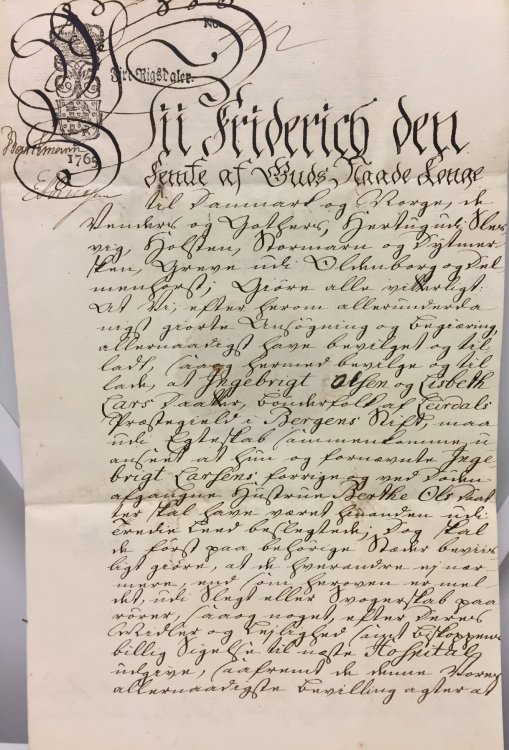 No
Fiire Rigsdaler.
1765
Vii Friderich den
Femte af Guds Naade Konge
til Danmark og Norge, de
Venders og Gothers, Hertug udi Sles
vig, Holsten, Stormarn og Dytmer
sken, Greve udi Oldenborg og Del
menhorst; Giøre alle vitterligt:
At Vi, efter herom allerunderda
nigst giorte Ansøgning og Begiæring,
allernaadigst have bevilget og til
ladt, saa og hermed bevilge og til
lade, at Ingebrigt Olsen og Lisbeth
Lars Daatter, Bønderfolk af Leirdals
Præstegield i Bergens Stift, maa
udi Egteskab sammenkomme,
anseet at hun og fornævnte Inge
brigt Larsens forrige og ved Døden
afgangne Hustrue Berthe Ols Daat
ter skal have været hinanden udi
Tredie Leed beslegtede; Dog skal
de først paa behørige Stæder beviis
ligt giøre, at de hverandre ej nær
mere, end som heroven er mel
det, udi Slegt eller Svogerskab paa
rører, saa og noget, efter deres
Midler og Lejlighed samt Biskoppens
billig Sigelse til næste Hospital
udgive, saafremt de denne Vores
allernaadigste Bevilling agter at